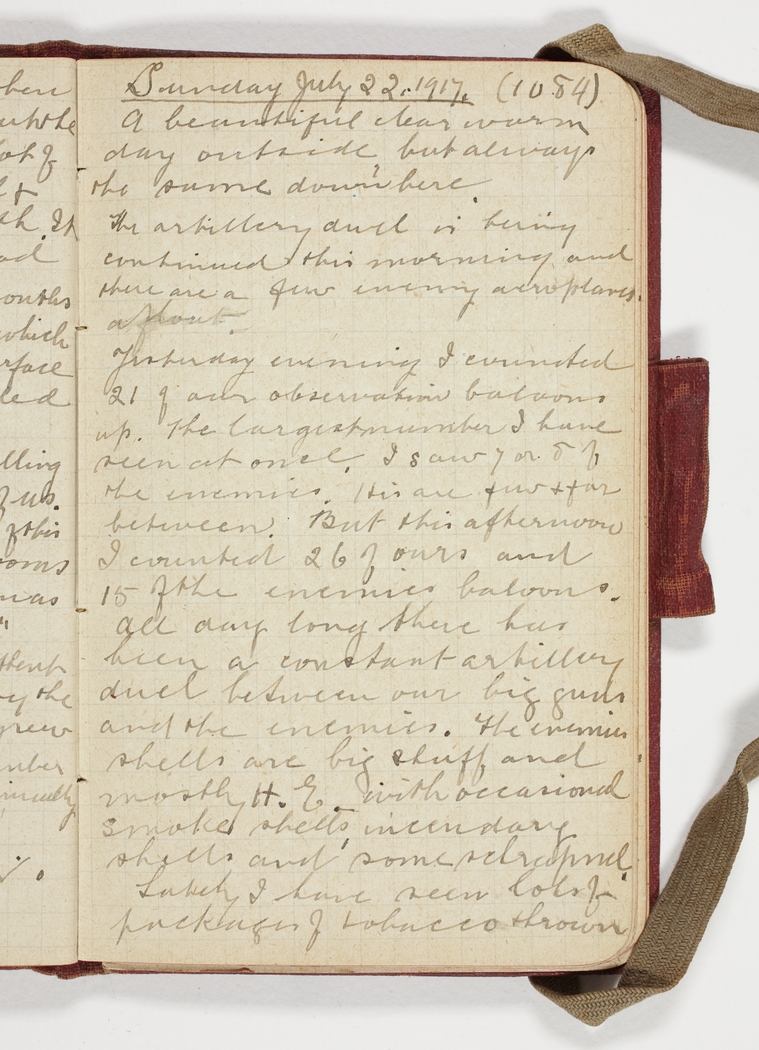 when
lot of
&
sh. It
ad
months
which
rface
led
lling
of us.
of this
ooms
was
"
the
grew
mber
Sunday July 22. 1917. (1084)
A beautiful clear warm
day outside but always
the same down "here
The artillery duel is being
continued this morning and
there are a few enemy aeroplanes.
about.
Yesterday evening I counted
21 of our observation baloons
up. The largest number I have
seen at once. I saw 7 or 8 of
the enemies. His are few & far
between. But this afternoon
I counted 26 of ours and
15 of the enemies baloons.
All day long there has
been a constant artillery
duel between our big guns
and the enemies. The enemies
shells are big stuff and
mostly H. E. with occasional
smoke shells, incendary
shells and some schrapnel.
Lately I have seen lots of
packages of tobacco thrown